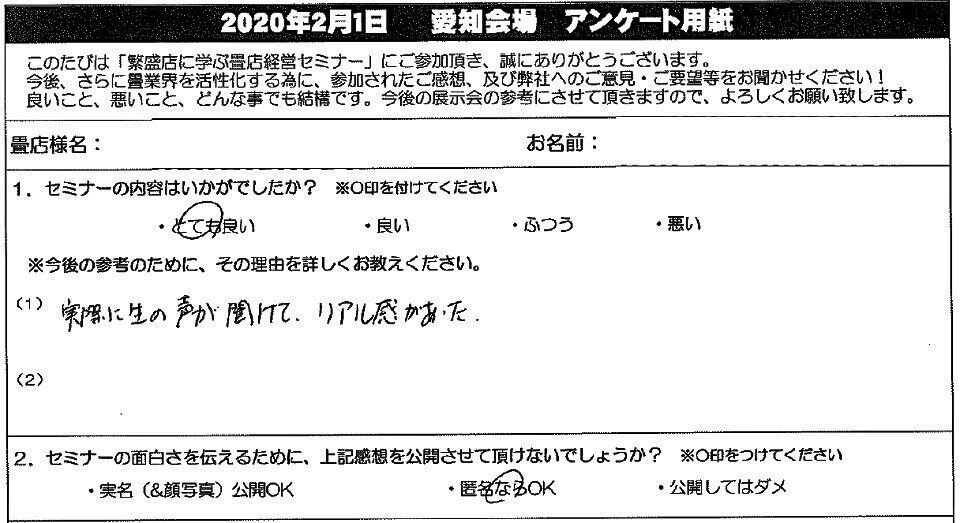 2020年2月1日 愛知会場 アンケート用紙
このたびは「繁盛店に学ぶ畳店経営セミナー」にご参加頂き、誠にありがとうございます。
今後、さらに畳業界を活性化する為に、参加されたご感想、及び弊社へのご意見・ご要望等をお聞かせください!
良いこと、悪いこと、どんな事でも結構です。今後の展示会の参考にさせて頂きますので、よろしくお願い致します。
畳店様名: お名前:
1.セミナーの内容はいかがでしたか? ※〇印を付けてください
・とても良い ・良い ・ふつう ・悪い
※今後の参考のために、その理由を詳しくお教えください。
(1) 実際に生の声が聞けて、リアル感があった.
(2)
2.セミナーの面白さを伝えるために、上記感想を公開させて頂けないでしょうか? ※〇印をつけてください
・実名(&顔写真)公開OK ・匿名ならOK ・公開してはダメ